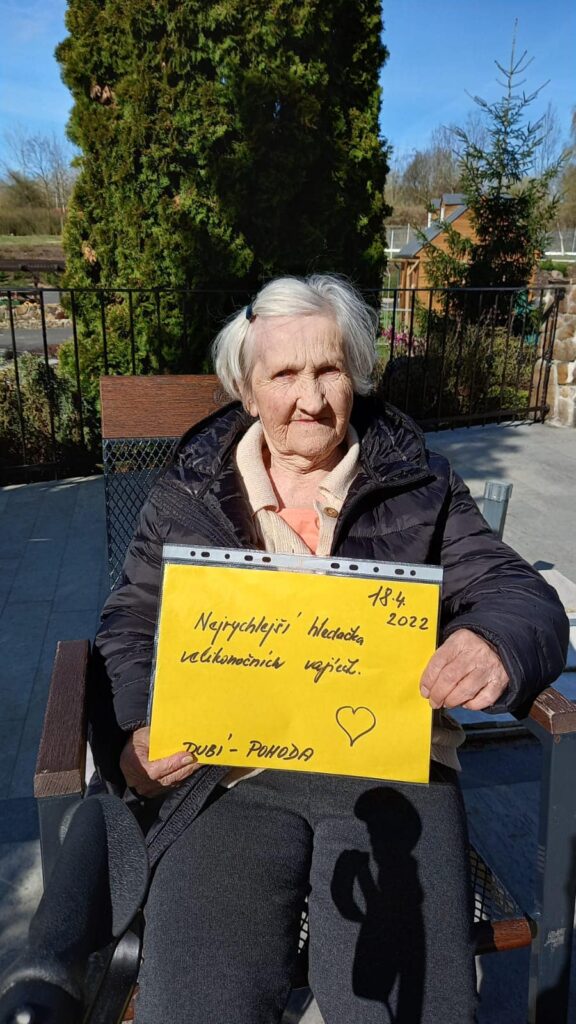 18.4.
2022
Nejrychlejší hledačka
velikonočních vajíček.
DUBÍ - POHODA